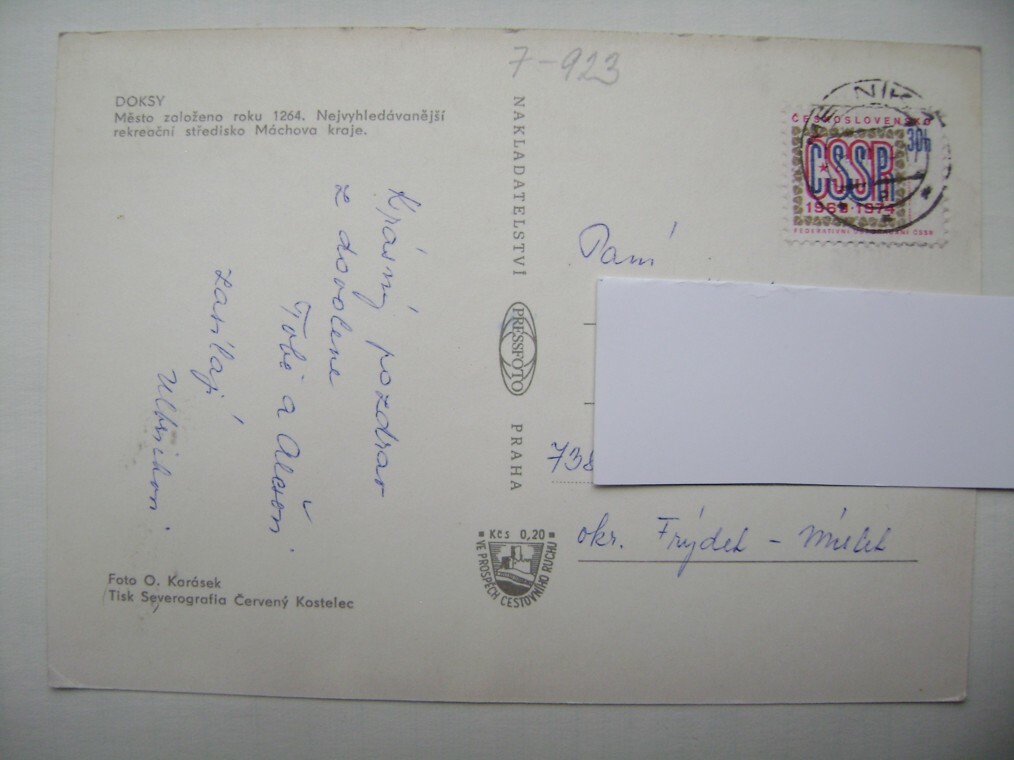 7-923
DOKSY
Město založeno roku 1264. Nejvyhledávanější
rekreační středisko Máchova kraje.
Krásný pozdrav
z dovolene
Tobě a Alešon
zasílají
Ulbrichovi
Foto O. Karásek
Tisk Severografia Červený Kostelec
NAKLADATELSTVÍ PRESSFOTO PRAHA
Kčs 0,20
VE PROSPĚCH CESTOVNÍHO RUCHU
ČESKOSLOVENSKO
30h
ČSSR
1969-1974
FEDERATIVNÍ USPOŘÁDÁNÍ ČSSR
Paní
738
okr. Frýdek - Místek